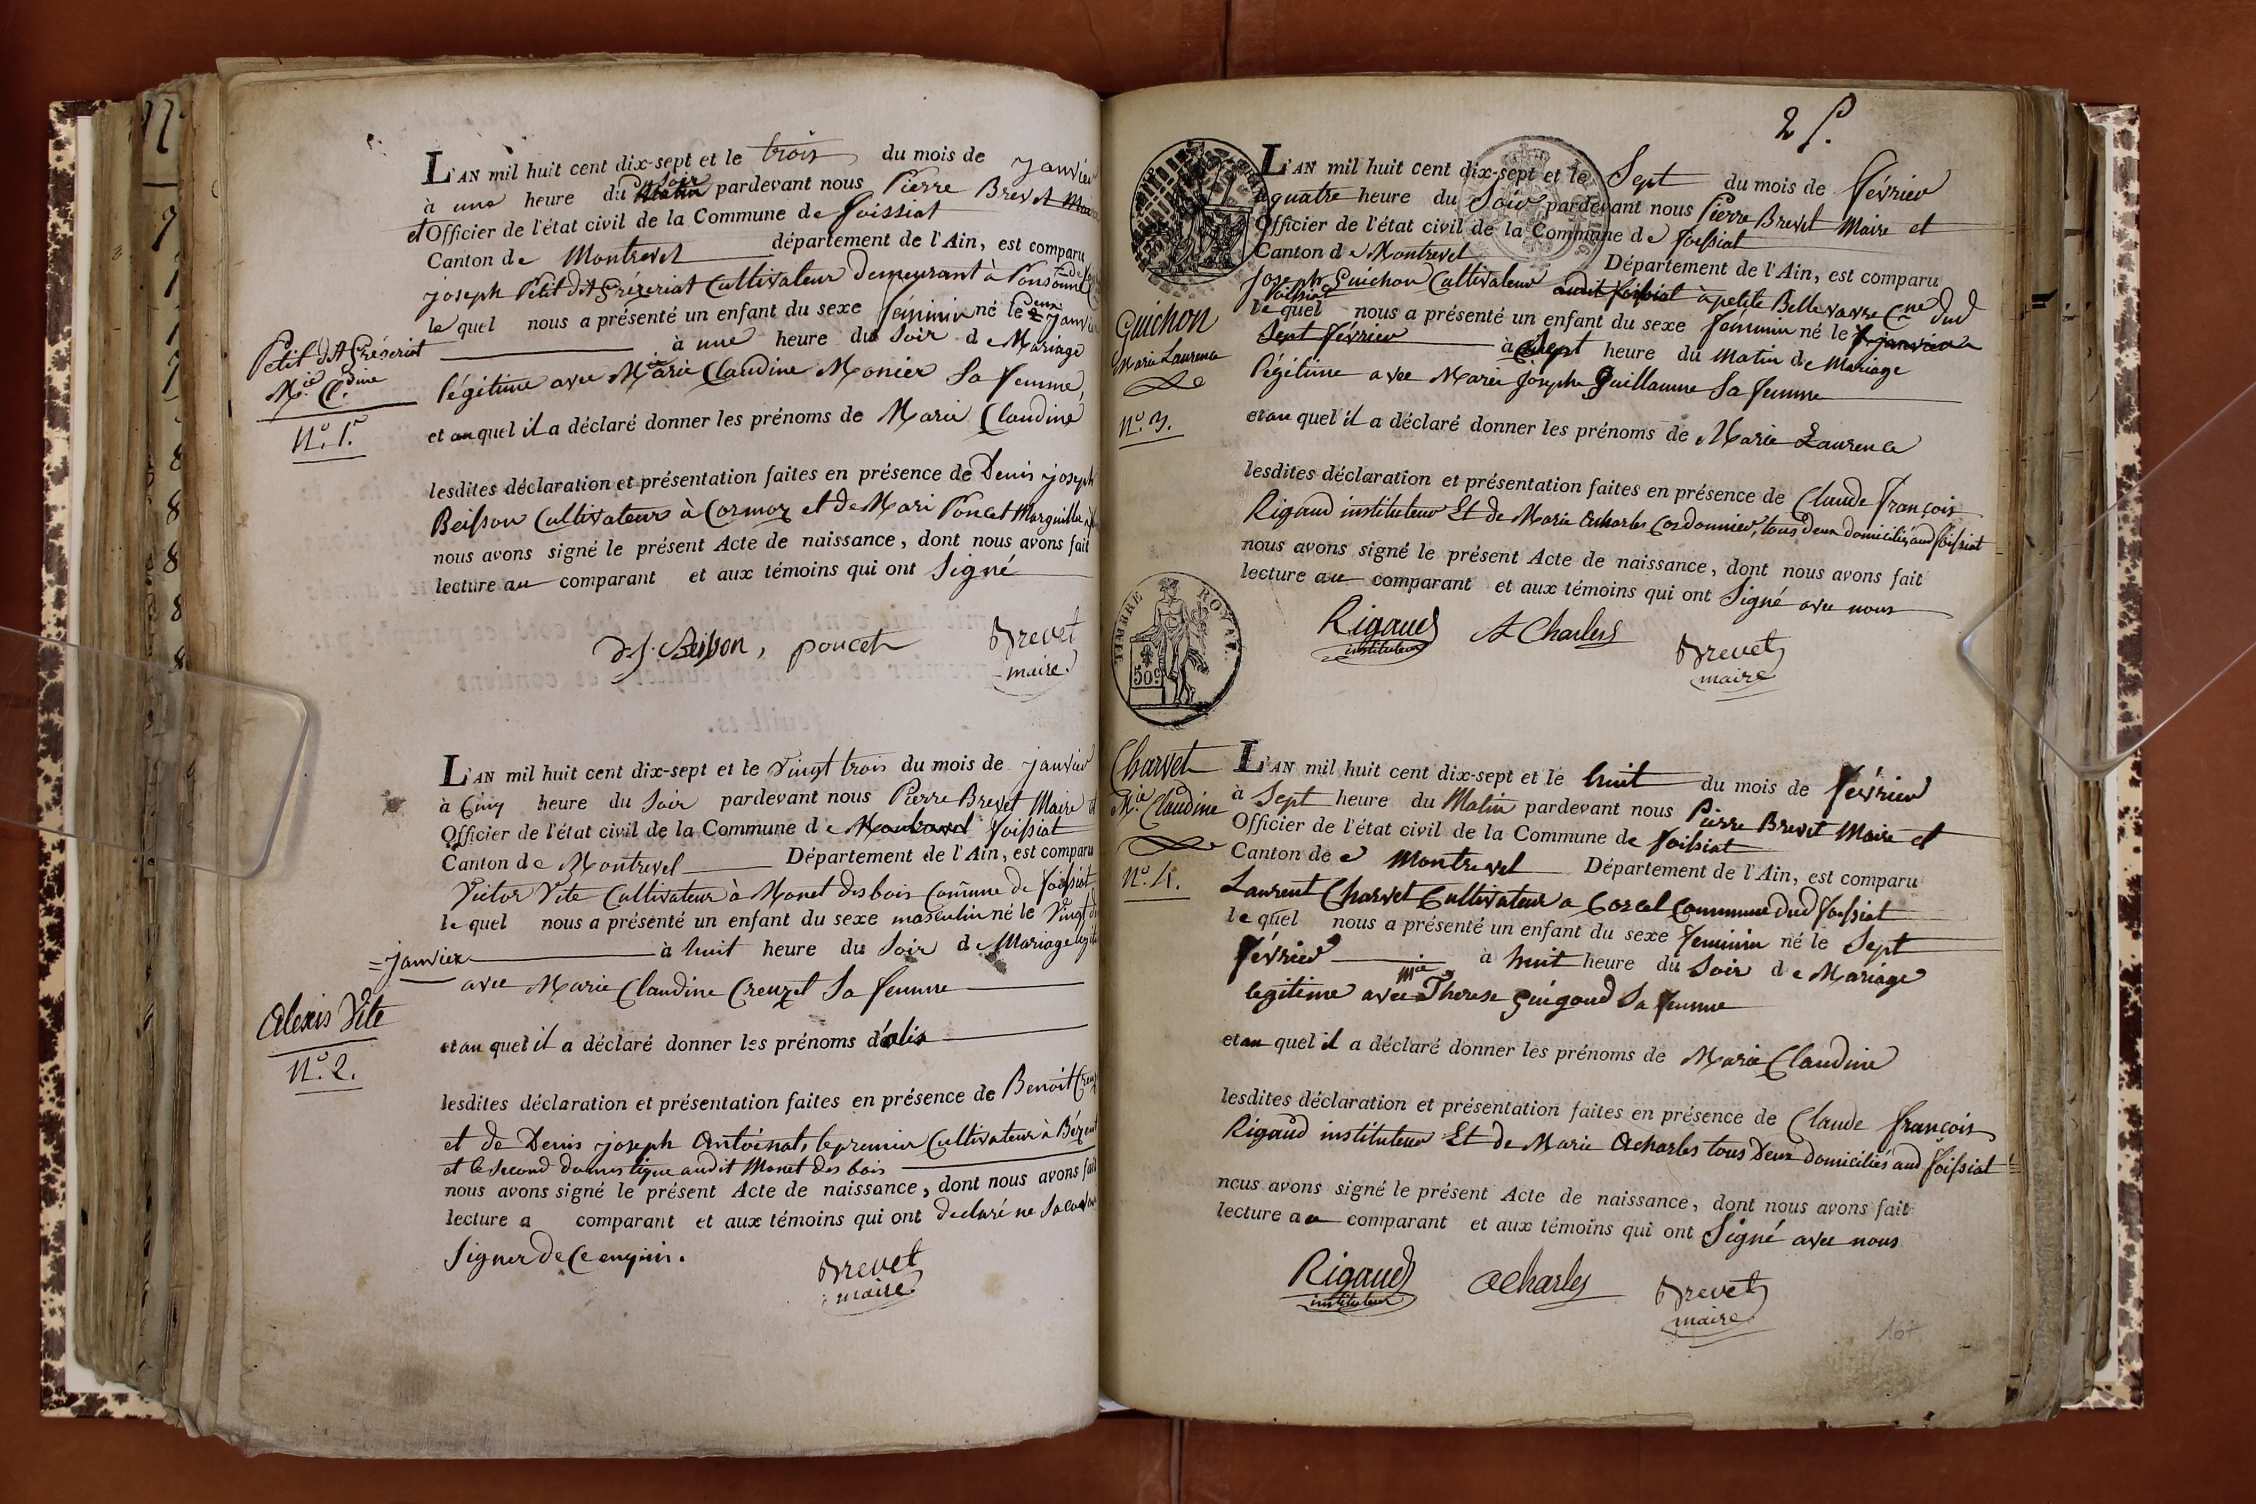 L'AN mil huit cent dix-sept et le trois du mois de janvier
à une heure du Matin soir pardevant nous Pierre Brevet Maire
et Officier de l'état civil de la Commune de foissiat
Canton de Montrevel département de l'Ain, est comparu
joseph Petit dit Grézeriat Cultivateur demeurant à
le quel nous a présenté un enfant du sexe féminin né le deux janvier
à une heure du soir de Mariage
légitime avec Marie Claudine Monier Sa femme,
et au quel il a déclaré donner les prénoms de Marie Claudine
lesdites déclaration et présentation faites en présence de Denis joseph
Beisson Cultivateur à Cormoz et de Mari Poncet Marguillier
nous avons signé le présent Acte de naissance, dont nous avons fait
lecture au comparant et aux témoins qui ont Signé
d.j. Beisson, poncet Brevet
maire
Petit dit Grézeriat
Mie Cdine
N.º 1.er
L'AN mil huit cent dix-sept et le Vingt trois du mois de janvier
à Cinq heure du Soir pardevant nous Pierre Brevet Maire et
Officier de l'état civil de la Commune de Montrevel foissiat
Canton de Montrevel Département de l'Ain, est comparu
Victor Vite Cultivateur à Monet des bois Commune de foissiat
le quel nous a présenté un enfant du sexe masculin né le Vingt
=janvier à huit heure du Soir de Mariage
avec Marie Claudine Creuzet Sa femme
et au quel il a déclaré donner les prénoms d'
lesdites déclaration et présentation faites en présence de Benoit
et de Denis joseph Antoinat, le premier Cultivateur à
et le second domestique audit Monet des bois
nous avons signé le présent Acte de naissance, dont nous avons fait
lecture a comparant et aux témoins qui ont declaré ne
Signer de Ce enquis.
Brevet
maire
Alexis Vite
N.º 2.
2 f.
L'AN mil huit cent dix-sept et le Sept du mois de février
à quatre heure du Soir pardevant nous Pierre Brevet Maire et
Officier de l'état civil de la Commune de foissiat
Canton de Montrevel Département de l'Ain, est comparu
joseph Guichon Cultivateur audit foissiat à petite Bellevavre Cne dud
foissiat
le quel nous a présenté un enfant du sexe féminin né le
Sept février à Sept heure du Matin de Mariage
légitime avec Marie Joseph Guillaume Sa femme
et au quel il a déclaré donner les prénoms de Marie Laurence
lesdites déclaration et présentation faites en présence de Claude françois
Rigaud instituteur Et de Marie Acharles Cordonnier, tous deux domiciliés aud foissiat
nous avons signé le présent Acte de naissance, dont nous avons fait
lecture au comparant et aux témoins qui ont Signé avec nous
Rigaud A Charles Brevet
instituteur maire
Guichon
Marie Laurence
N.º 3.
TIMBRE ROYAL
50c
L'AN mil huit cent dix-sept et le huit du mois de février
à Sept heure du Matin pardevant nous Pierre Brevet Maire et
Officier de l'état civil de la Commune de foissiat
Canton de Montrevel Département de l'Ain, est comparu
Laurent Charvet Cultivateur a Corcel Commune dud foissiat
le quel nous a présenté un enfant du sexe feminin né le Sept
février à huit heure du Soir de Mariage
legitime avec Mie Therese Guigoud Sa femme
et au quel il a déclaré donner les prénoms de Marie Claudine
lesdites déclaration et présentation faites en présence de Claude françois
Rigaud instituteur Et de Marie Acharles tous Deux domiciliés aud foissiat
nous avons signé le présent Acte de naissance, dont nous avons fait
lecture au comparant et aux témoins qui ont Signé avec nous
Rigaud ACharles Brevet
instituteur maire
Charvet
Mie Claudine
N.º 4.
167